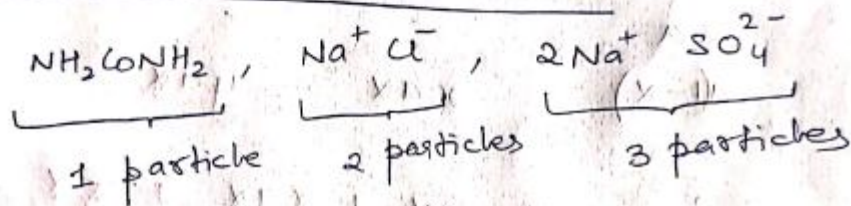 NH₂CONH₂, Na⁺ Cl⁻, 2Na⁺ SO₄²⁻
1 particle 2 particles 3 particles